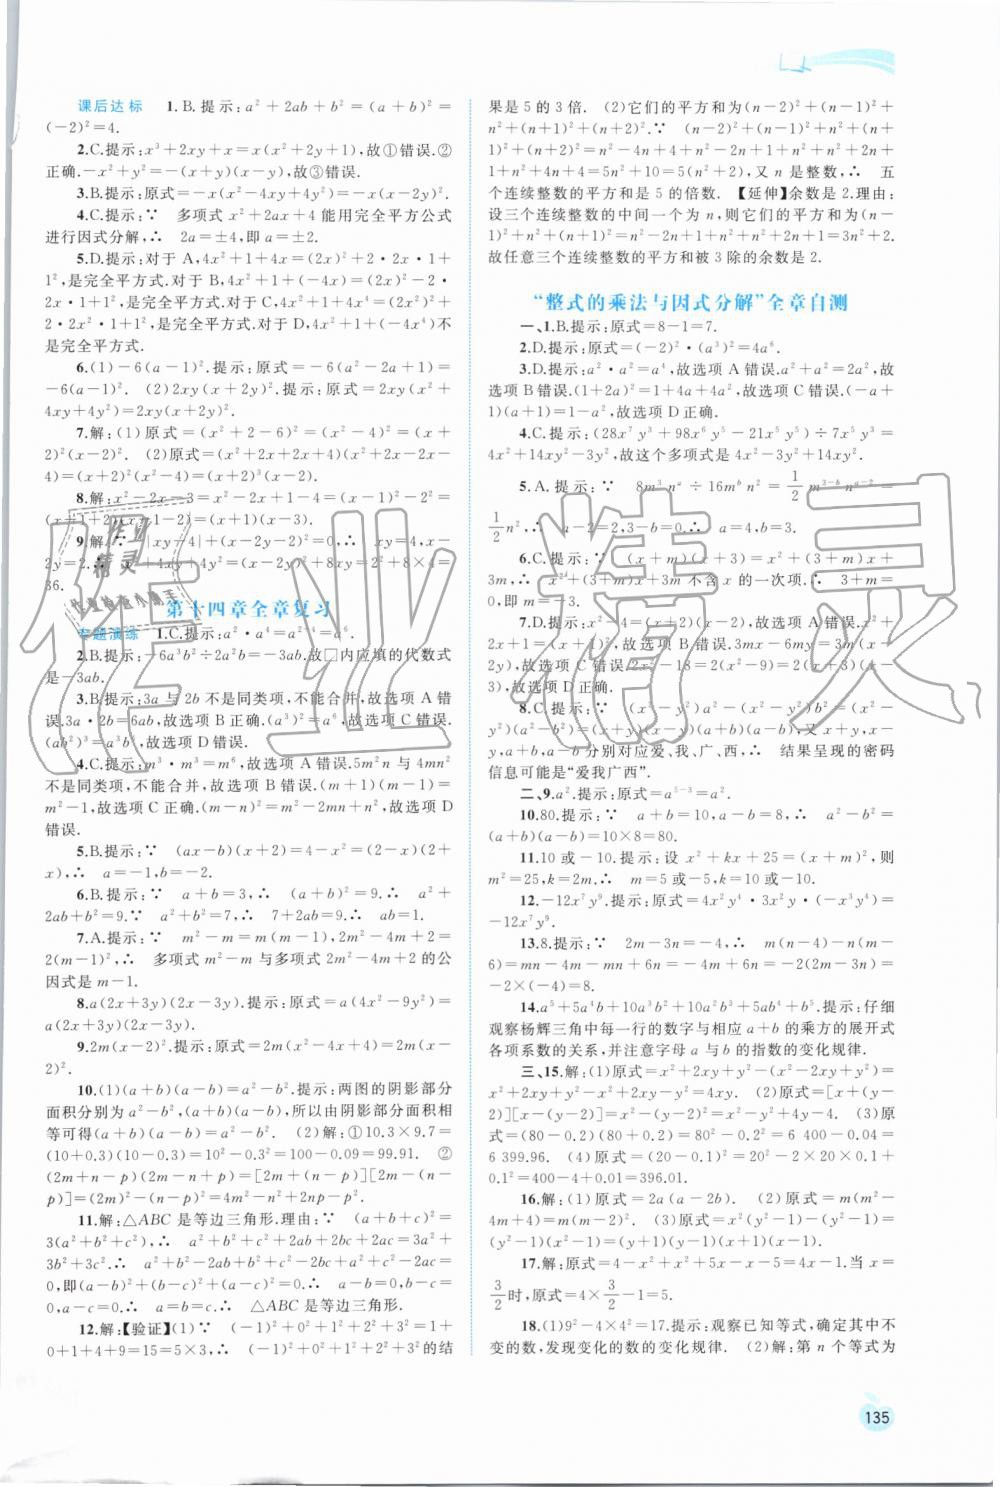 课后达标 1.B.提示:a²+2ab+b²=(a+b)²=
(-2)²=4.
2.C.提示:x³+2xy+x=x(x²+2y+1),故①错误.②
正确.-x²+y²=-(x+y)(x-y),故③错误.
3.B.提示:原式=-x(x²-4xy+4y²)=-x(x-2y)².
4.C.提示:∵ 多项式x²+2ax+4能用完全平方公式
进行因式分解,∴ 2a=±4,即a=±2.
5.D.提示:对于A,4x²+1+4x=(2x)²+2·2x·1+
1²,是完全平方式.对于B,4x²+1+(-4x)=(2x)²-2·
2x·1+1²,是完全平方式.对于C,4x²+1+4x⁴=(2x²)²+
2·2x²·1+1²,是完全平方式.对于D,4x²+1+(-4x⁴)不
是完全平方式.
6.(1)-6(a-1)².提示:原式=-6(a²-2a+1)=
-6(a-1)². (2)2xy(x+2y)².提示:原式=2xy(x²+
4xy+4y²)=2xy(x+2y)².
7.解:(1)原式=(x²+2-6)²=(x²-4)²=(x+
2)²(x-2)². (2)原式=(x²+2x+2x+4)(x²+2x-2x-
4)=(x+2)²(x²-4)=(x+2)³(x-2).
8.解:x²-2x-3=x²-2x+1-4=(x-1)²-2²=
(x-1+2)(x-1-2)=(x+1)(x-3).
9.解:∵ |xy-4|+(x-2y-2)²=0,∴ xy=4,x-
2y=2.∴ x²+4xy+4y²=(x-2y)²+8xy=2²+8×4=
36.
第十四章全章复习
专题演练 1.C.提示:a²·a⁴=a²⁺⁴=a⁶.
2.B.提示:-6a³b²÷2a²b=-3ab.故□内应填的代数式
是-3ab.
3.B.提示:3a与2b不是同类项,不能合并,故选项A错
误.3a·2b=6ab,故选项B正确.(a³)²=a⁶,故选项C错误.
(ab²)³=a³b⁶,故选项D错误.
4.C.提示:m³·m³=m⁶,故选项A错误.5m²n与4mn²
不是同类项,不能合并,故选项B错误.(m+1)(m-1)=
m²-1,故选项C正确.(m-n)²=m²-2mn+n²,故选项D
错误.
5.B.提示:∵ (ax-b)(x+2)=4-x²=(2-x)(2+
x),∴ a=-1,b=-2.
6.B.提示:∵ a+b=3,∴ (a+b)²=9.∴ a²+
2ab+b²=9.∵ a²+b²=7,∴ 7+2ab=9.∴ ab=1.
7.A.提示:∵ m²-m=m(m-1),2m²-4m+2=
2(m-1)²,∴ 多项式m²-m与多项式2m²-4m+2的公
因式是m-1.
8.a(2x+3y)(2x-3y).提示:原式=a(4x²-9y²)=
a(2x+3y)(2x-3y).
9.2m(x-2)².提示:原式=2m(x²-4x+4)=2m(x-
2)².
10.(1)(a+b)(a-b)=a²-b².提示:两图的阴影部分
面积分别为a²-b²,(a+b)(a-b),所以由阴影部分面积相
等可得(a+b)(a-b)=a²-b². (2)解:①10.3×9.7=
(10+0.3)(10-0.3)=10²-0.3²=100-0.09=99.91. ②
(2m+n-p)(2m-n+p)=[2m+(n-p)][2m-(n-
p)]=(2m)²-(n-p)²=4m²-n²+2np-p².
11.解:△ABC是等边三角形.理由:∵ (a+b+c)²=
3(a²+b²+c²),∴ a²+b²+c²+2ab+2bc+2ac=3a²+
3b²+3c².∴ a²+b²-2ab+b²+c²-2bc+a²+c²-2ac=
0,即(a-b)²+(b-c)²+(a-c)²=0.∴ a-b=0,b-c=
0,a-c=0.∴ a=b=c.∴ △ABC是等边三角形.
12.解:【验证】(1)∵ (-1)²+0²+1²+2²+3²=1+
0+1+4+9=15=5×3,∴ (-1)²+0²+1²+2²+3²的结
果是5的3倍. (2)它们的平方和为(n-2)²+(n-1)²+
n²+(n+1)²+(n+2)².∵ (n-2)²+(n-1)²+n²+(n+
1)²+(n+2)²=n²-4n+4+n²-2n+1+n²+n²+2n+
1+n²+4n+4=5n²+10=5(n²+2),又n是整数,∴ 五
个连续整数的平方和是5的倍数. 【延伸】余数是2.理由:
设三个连续整数的中间一个为n,则它们的平方和为(n-
1)²+n²+(n+1)²=n²-2n+1+n²+n²+2n+1=3n²+2.
故任意三个连续整数的平方和被3除的余数是2.
“整式的乘法与因式分解”全章自测
一、1.B.提示:原式=8-1=7.
2.D.提示:原式=(-2)²·(a³)²=4a⁶.
3.D.提示:a³·a=a⁴,故选项A错误.a²+a²=2a²,故
选项B错误.(1+2a)²=1+4a+4a²,故选项C错误.(-a+
1)(a+1)=1-a²,故选项D正确.
4.C.提示:(28x⁷y³+98x⁶y⁵-21x⁵y⁵)÷7x⁵y³=
4x²+14xy²-3y²,故这个多项式是4x²-3y²+14xy².
5.A.提示:∵ 8m³nᵃ÷16mᵇn²=1/2m³⁻ᵇnᵃ⁻²=
1/2n²,∴ a-2=2,3-b=0,∴ a=4,b=3.
6.C.提示:∵ (x+m)(x+3)=x²+(3+m)x+
3m,∴ x²+(3+m)x+3m不含x的一次项.∴ 3+m=
0,即m=-3.
7.D.提示:x²+2x+1=(x+1)²,故选项A错误.x²+
2x+1=(x+1)²,故选项B错误.3mx-6my=3m(x-
2y),故选项C错误.2x²-18=2(x²-9)=2(x+3)(x-
3),故选项D正确.
8.C.提示:∵ (x²-y²)a²-(x²-y²)b²=(x²-
y²)(a²-b²)=(x+y)(x-y)(a+b)(a-b),又x+y,x-
y,a+b,a-b分别对应爱、我、广、西,∴ 结果呈现的密码
信息可能是“爱我广西”.
二、9.a².提示:原式=a⁵⁻³=a².
10.80.提示:∵ a+b=10,a-b=8,∴ a²-b²=
(a+b)(a-b)=10×8=80.
11.10或-10.提示:设x²+kx+25=(x+m)²,则
m²=25,k=2m.∴ m=5或m=-5.∴ k=10或-10.
12.-12x⁷y⁹.提示:原式=4x²y⁴·3x²y·(-x³y⁴)=
-12x⁷y⁹.
13.8.提示:∵ 2m-3n=-4,∴ m(n-4)-n(m-
6)=mn-4m-mn+6n=-4m+6n=-2(2m-3n)=
-2×(-4)=8.
14.a⁵+5a⁴b+10a³b²+10a²b³+5ab⁴+b⁵.提示:仔细
观察杨辉三角中每一行的数字与相应a+b的乘方的展开式
各项系数的关系,并注意字母a与b的指数的变化规律.
三、15.解:(1)原式=x²+2xy+y²-(x²-2xy+y²)=
x²+2xy+y²-x²+2xy-y²=4xy. (2)原式=[x+(y-
2)][x-(y-2)]=x²-(y-2)²=x²-y²+4y-4. (3)原
式=(80-0.2)(80+0.2)=80²-0.2²=6 400-0.04=
6 399.96. (4)原式=(20-0.1)²=20²-2×20×0.1+
0.1²=400-4+0.01=396.01.
16.解:(1)原式=2a(a-2b). (2)原式=m(m²-
4m+4)=m(m-2)². (3)原式=x²(y²-1)-(y²-1)=
(y²-1)(x²-1)=(y+1)(y-1)(x+1)(x-1).
17.解:原式=4-x²+x²+5x-x-5=4x-1.当x=
3/2时,原式=4×3/2-1=5.
18.(1)9²-4×4²=17.提示:观察已知等式,确定其中不
变的数,发现变化的数的变化规律. (2)解:第n个等式为
135
作业精灵
作业
精灵
作业检查小助手